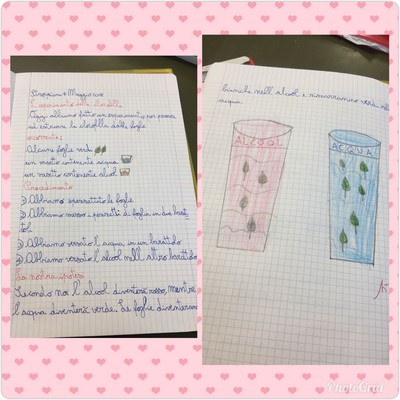 Maggio
L'esperimento della clorofilla
Oggi abbiamo fatto un esperimento per provare
ad estrarre la clorofilla dalle foglie
occorrente:
Alcune foglie verdi
un vasetto contenente acqua
un vasetto contenente alcol
Procedimento
1) Abbiamo spezzettato le foglie
2) Abbiamo messo i pezzetti di foglia in due barat
toli
3) Abbiamo versato l'acqua in un barattolo
4) Abbiamo versato l'alcol nell'altro barattolo
La nostra ipotesi
Secondo noi l'alcol diventerà rosso, mentre
l'acqua diventerà verde. Le foglie diventeranno
bianche nell'alcol e rimarranno verdi
acqua.
ALCOOL
ACQUA
PhotoGrid